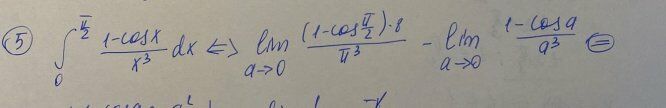 ⑤ ∫₀^{π/2} (1-cosx)/x³ dx <=> lim_{a→0} ((1-cos π/2)·8)/π³ - lim_{a→0} (1-cosa)/a³ ⊜